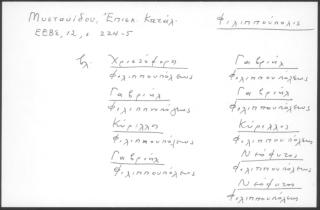 Μυστακίδου, Ἐπισκ. Κατάλ.
Φιλιππούπολις
ΕΕΒΣ, 12, σ 224-5
βλ. Χριστόφορος
Φιλιππουπόλεως
Γαβριὴλ
Φιλιππουπόλεως
Κύριλλος
Φιλιππουπόλεως
Γαβριὴλ
Φιλιππουπόλεως
Γαβριὴλ
Φιλιππουπόλεως
Γαβριὴλ
Φιλιππουπόλεως
Κύριλλος
Φιλιππουπόλεως
Νεόφυτος
Φιλιππουπόλεως
Νεόφυτος
Φιλιππουπόλεως